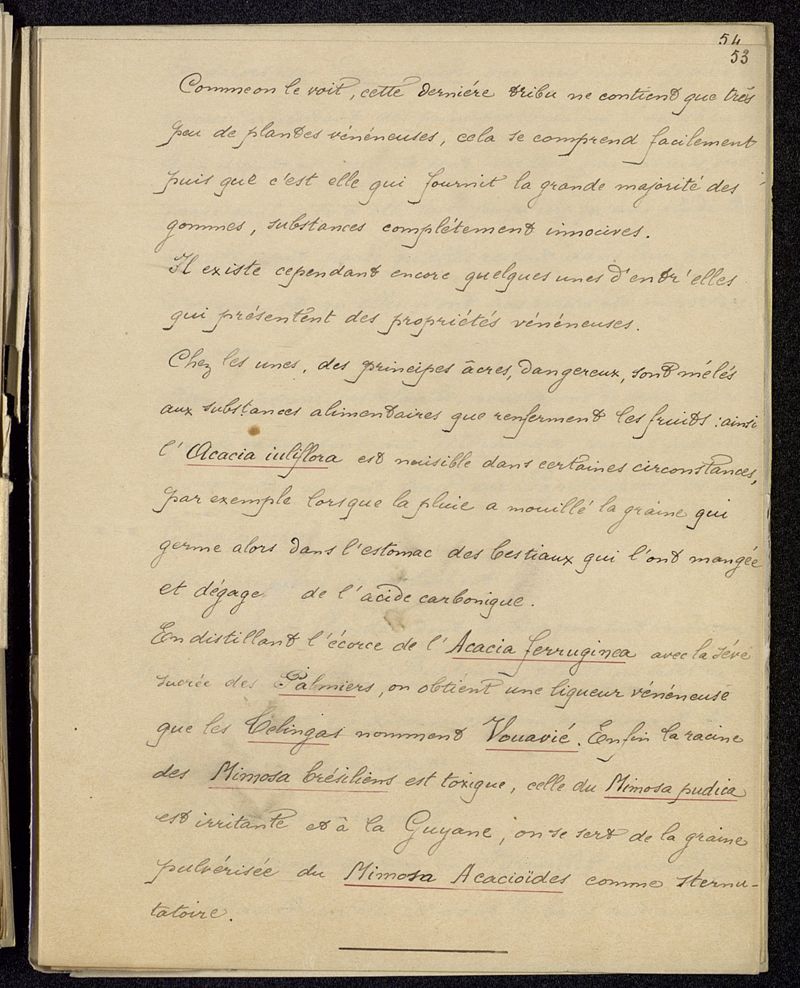 54
53
Comme on le voit, cette derniére tribu ne contient que très
peu de plantes vénéneuses, cela se comprend facilement
puis que c'est elle qui fournit la grande majorité des
gommes, substances complétement innocives.
Il existe cependant encore quelques unes d'entr'elles
qui présentent des propriétés vénéneuses.
Chez les unes, des principes âcres, dangereux, sont mélés
aux substances alimentaires que renferment les fruits : ainsi
l'Acacia iuliflora est nuisible dans certaines circonstances,
par exemple lorsque la pluie a mouillé la graine qui
germe alors dans l'estomac des bestiaux qui l'ont mangée
et dégage de l'acide carbonique.
En distillant l'écorce de l'Acacia ferruginea avec la séve
sucrée des Palmiers, on obtient une liqueur vénéneuse
que les Celingas nomment Vouavié. Enfin la racine
des Mimosa brésiliens est toxique, celle du Mimosa pudica
est irritante et à la Guyane, on se sert de la graine
pulvérisée du Mimosa Acacioïdes comme sternu-
tatoire.